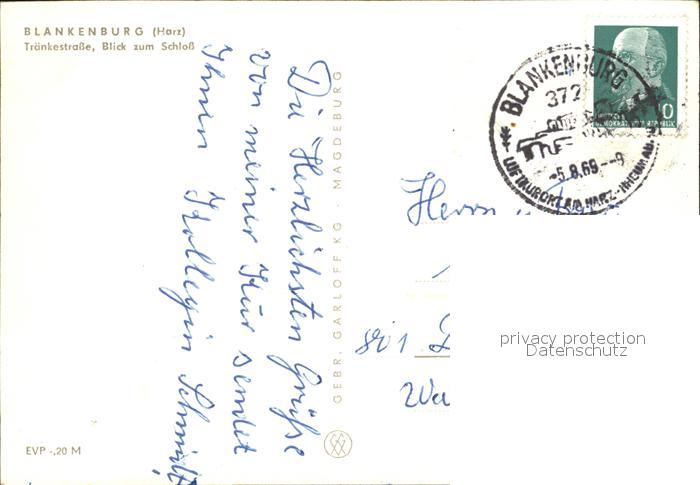 BLANKENBURG (Harz)
Tränkestraße, Blick zum Schloß
Die Herzlichsten Grüße
von meiner Kur sendet
Ihnen Kollegin Schmidt
GEBR. GARLOFF KG · MAGDEBURG
EVP -,20 M
BLANKENBURG
372
-5.8.69.--9
LUFTKURORT AM HARZ
Herrn u.
801 D
Wa
privacy protection
Datenschutz